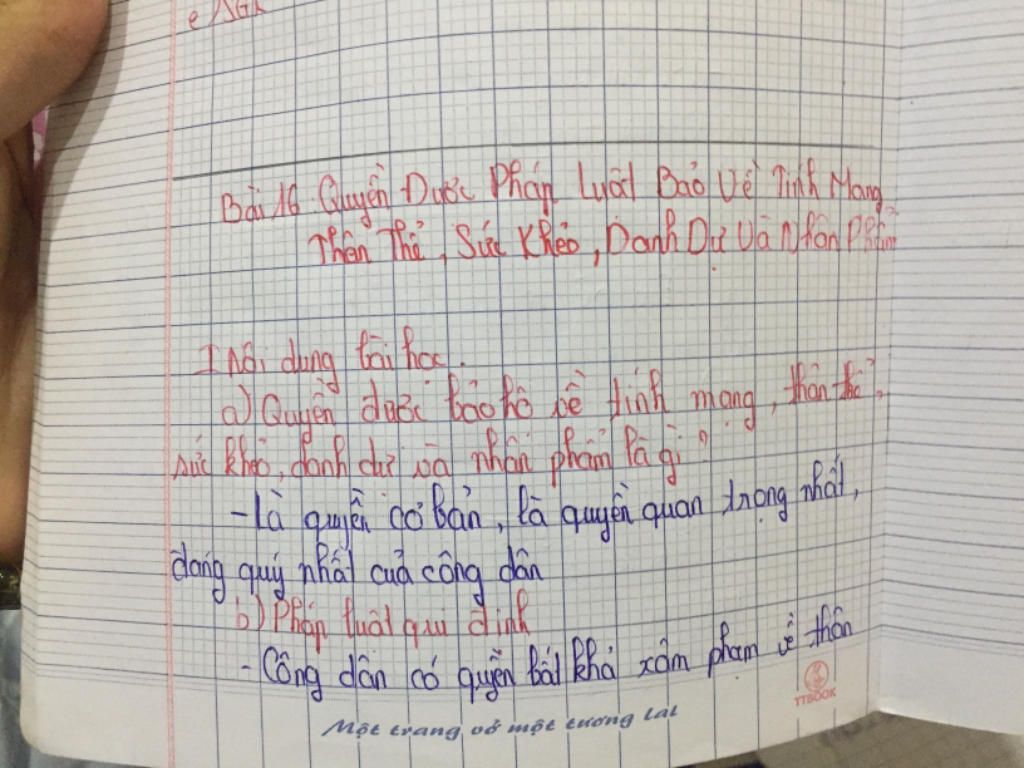 Bài 16. Quyền Được Pháp Luật Bảo Vệ Tính Mạng
Thân Thể, Sức Khẻo, Danh Dự Và Nhân Phẩm
I Nội dung bài học.
a) Quyền được bảo hộ về tính mạng, thân thể,
sức khẻo, danh dự và nhân phẩm là gì?
- Là quyền cơ bản, là quyền quan trọng nhất,
đáng quý nhất của công dân
b) Pháp luật qui định
- Công dân có quyền bất khả xâm phạm về thân
TTBOOK
Một trang vở một tương lai